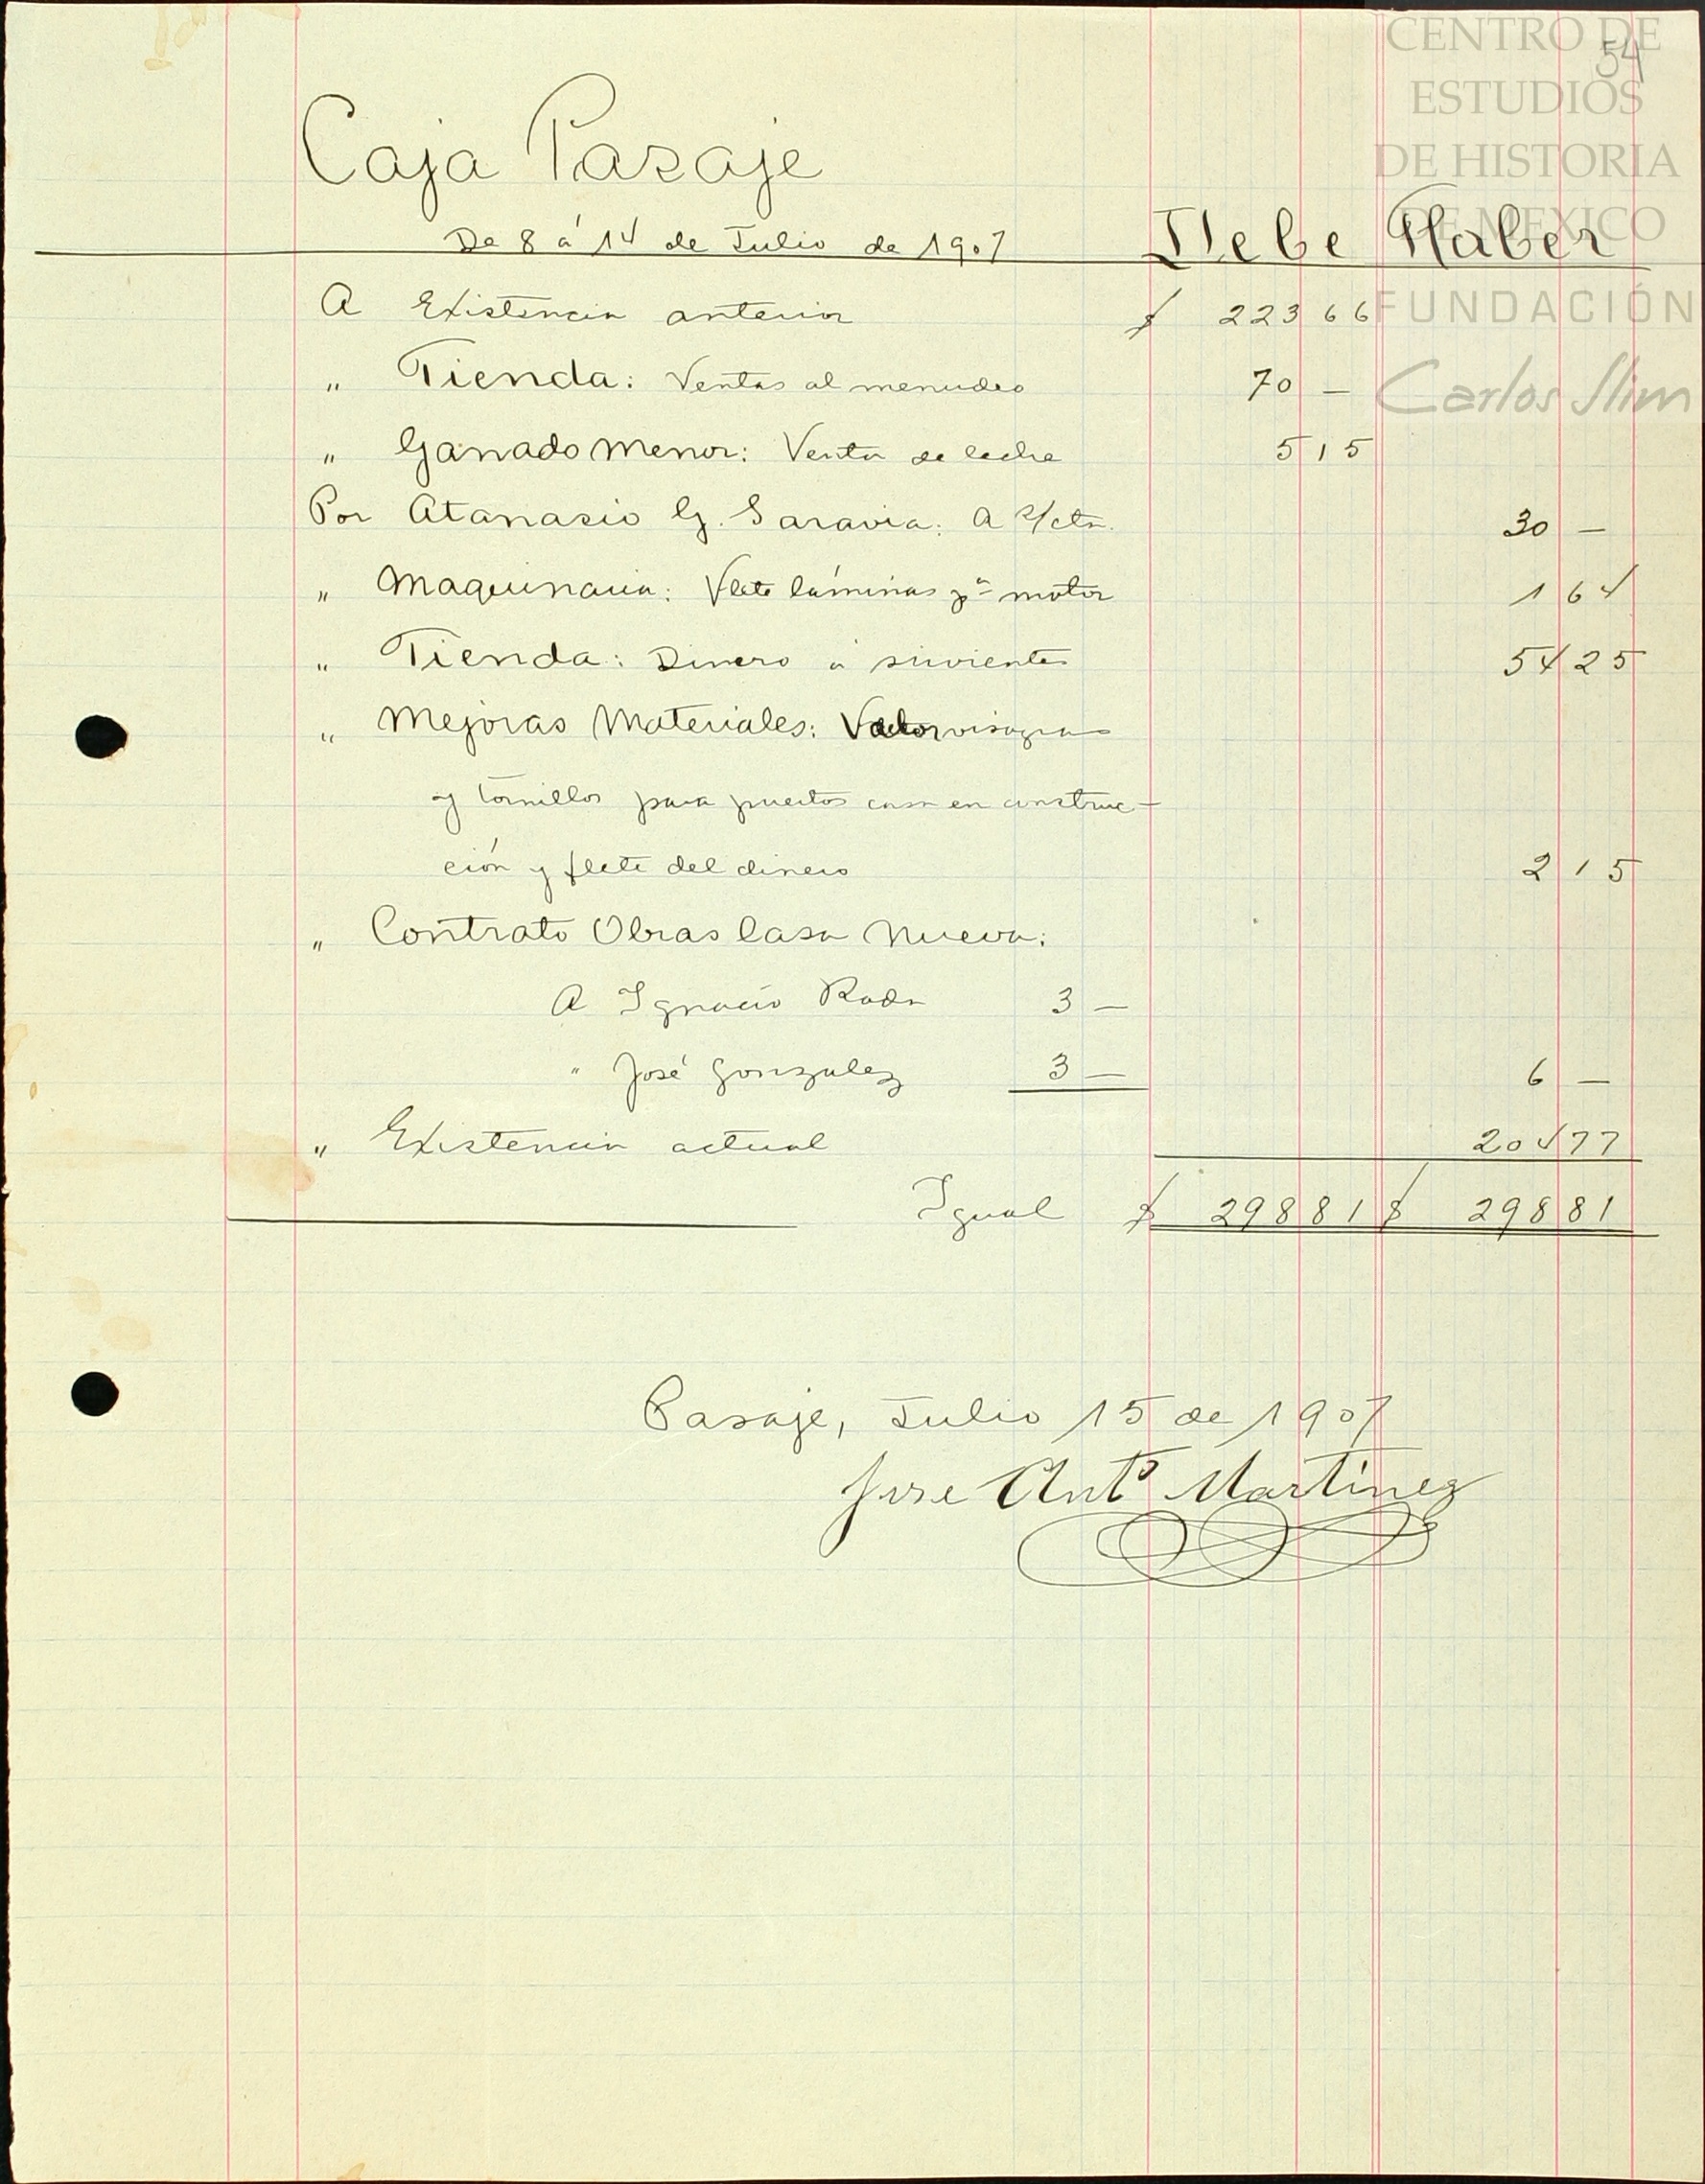 CENTRO DE
54
ESTUDIOS
DE HISTORIA
DE MEXICO
FUNDACIÓN
Carlos Slim
Caja Pasaje
De 8 á 14 de Julio de 1907 Debe Haber
A Existencia anterior $ 223 66
" Tienda: Ventas al menudeo 70 —
" Ganado Menor: Venta de leche 5 15
Por Atanasio G. Saravia: A s/cta. 30 —
" Maquinaria: Flete láminas pa motor 1 64
" Tienda: Dinero á sirvientes 54 25
" Mejoras Materiales: Valor visagras
y tornillos para puertas casa en construc-
ción y flete del dinero 2 15
" Contrato Obras Casa Nueva:
A Ignacio Roda 3 —
" José Gonzalez 3 — 6 —
" Existencia actual 204 77
Igual $ 298 81 $ 298 81
Pasaje, Julio 15 de 1907
Jose Anto Martínez